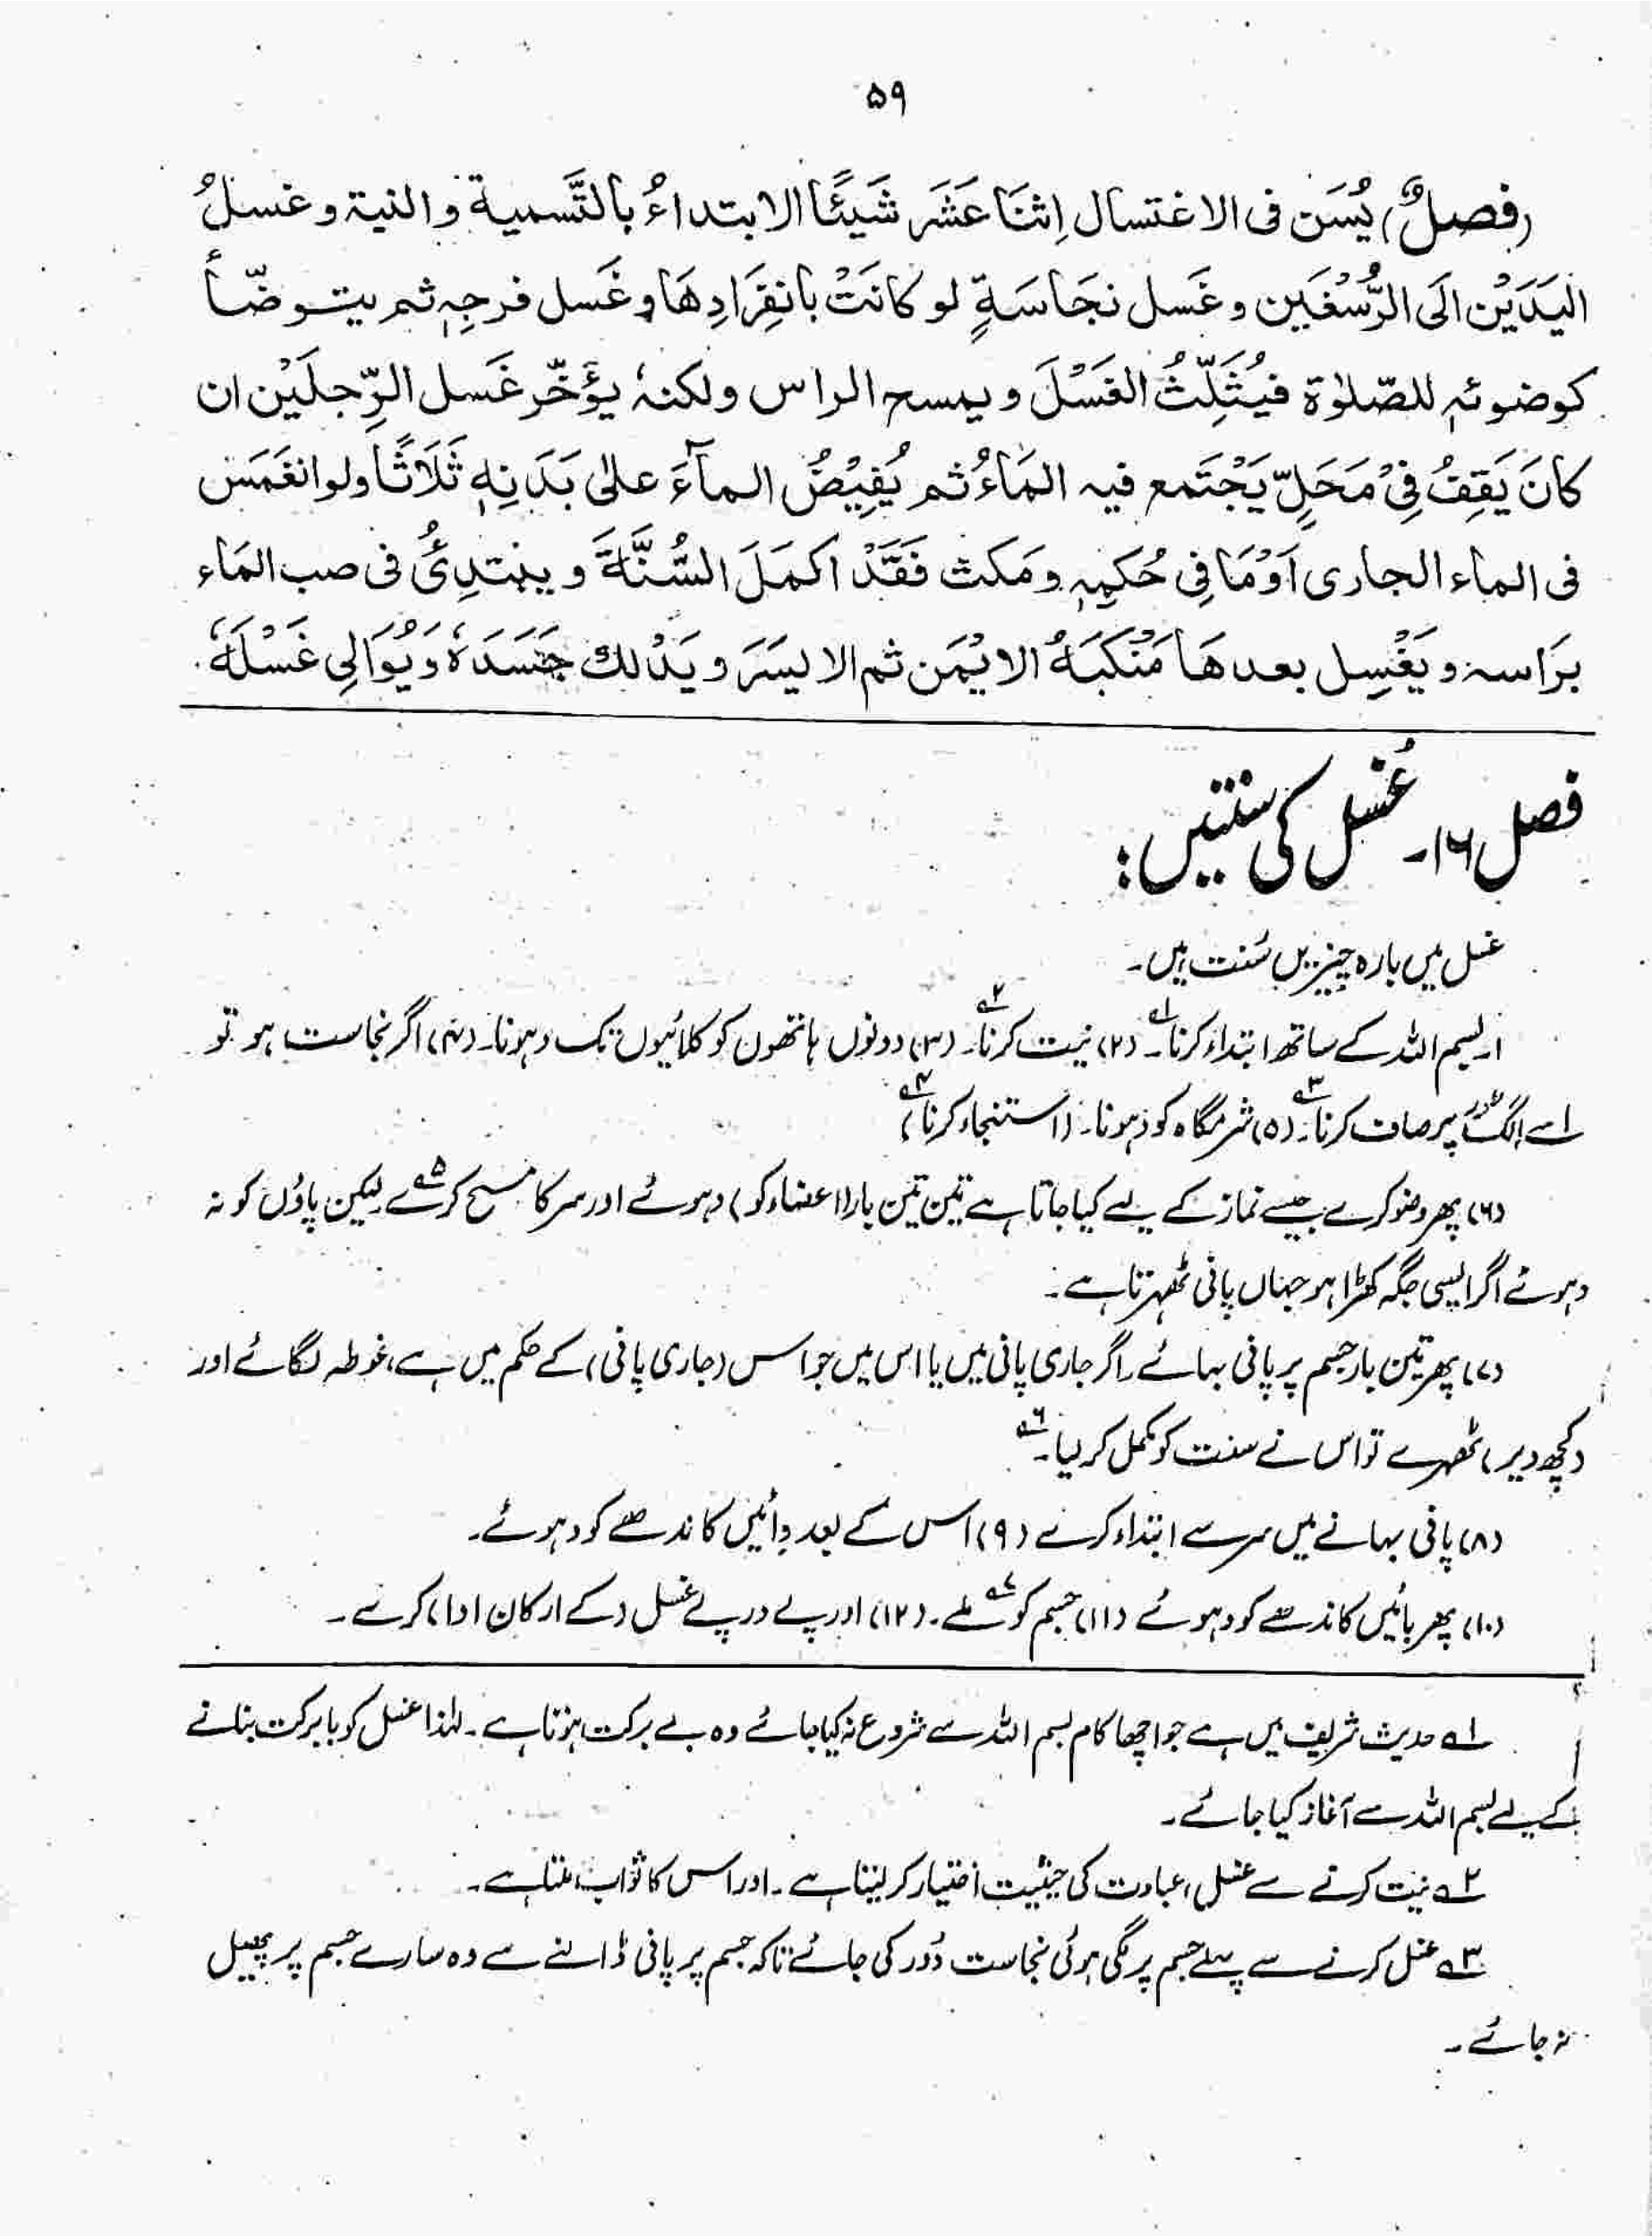 ۵۹
(فصلٌ) يُسَن فى الاغتسال اِثنَا عَشَرَ شَيئًا الابتداءُ بالتَّسمية والنية وغسلُ
اليَدَيْن الَى الرُّسْغَين وغَسل نجَاسَةٍ لو كانَتْ بانفِرَادِهَا وغَسل فرجِهٖ ثم يتوضّأ
كوضوئہٖ للصّلوٰة فيُثَلِّثُ الغَسْلَ ويمسح الراس ولكنہٗ يؤَخّر غَسل الرِّجلَيْن ان
كانَ يَقِفُ فِىْ مَحَلٍّ يَجْتَمع فيه المَاءُ ثم يُفِيْضُ المآءَ علىٰ بَدَنِهٖ ثَلَاثًا ولو انغَمَسَ
فى الماء الجارى اَوْمَا فِى حُكمِہٖ ومَكث فَقَدْ اكمَلَ السُّنَّةَ ويبتدِئُ فى صب المَاء
برَاسہٖ ويَغْسِل بعدهَا مَنْكَبَهُ الايْمَن ثم الايسَرَ ويَدْلك جَسَدَهٗ وَيُوَالِى غَسْلَهٗ.
فصل ۱۶۔ غُسل کی سنتیں:
غسل میں بارہ چیزیں سُنت ہیں۔
۱۔ بسم اللہ کے ساتھ ابتداء کرنا۱؎۔ (۲) نیت کرنا۲؎۔ (۳) دونوں ہاتھوں کو کلائیوں تک دہونا۔ (۴) اگر نجاست ہو تو
اسے الگ طور پر صاف کرنا۳؎۔ (۵) شرمگاہ کو دہونا۔ (استنجاء کرنا۴؎)
(۶) پھر وضو کرے جیسے نماز کے لیے کیا جاتا ہے تین تین بار (اعضاء کو) دہوئے اور سر کا مسح کرے۵؎ لیکن پاؤں کو نہ
دہوئے اگر ایسی جگہ کھڑا ہو جہاں پانی ٹھہرتا ہے۔
(۷) پھر تین بار جسم پر پانی بہائے۔ اگر جاری پانی میں یا اس میں جو اس (جاری پانی) کے حکم میں ہے، غوطہ لگائے اور
(کچھ دیر) ٹھہرے تو اس نے سنت کو مکمل کر لیا۔۶؎
(۸) پانی بہانے میں سر سے ابتداء کرے (۹) اس کے بعد دائیں کاندھے کو دہوئے۔
(۱۰) پھر بائیں کاندھے کو دہوئے (۱۱) جسم کو ملے۷؎۔ (۱۲) اور پے در پے غسل (کے ارکان ادا) کرے۔
۱؎ حدیث شریف میں ہے جو اچھا کام بسم اللہ سے شروع نہ کیا جائے وہ بے برکت ہوتا ہے۔ لہٰذا غسل کو بابرکت بنانے
کے لیے بسم اللہ سے آغاز کیا جائے۔
۲؎ نیت کرنے سے غسل، عبادت کی حیثیت اختیار کر لیتا ہے۔ اور اس کا ثواب ملتا ہے۔
۳؎ غسل کرنے سے پہلے جسم پر لگی ہوئی نجاست دُور کی جائے تاکہ جسم پر پانی ڈالنے سے وہ سارے جسم پر پھیل
نہ جائے۔